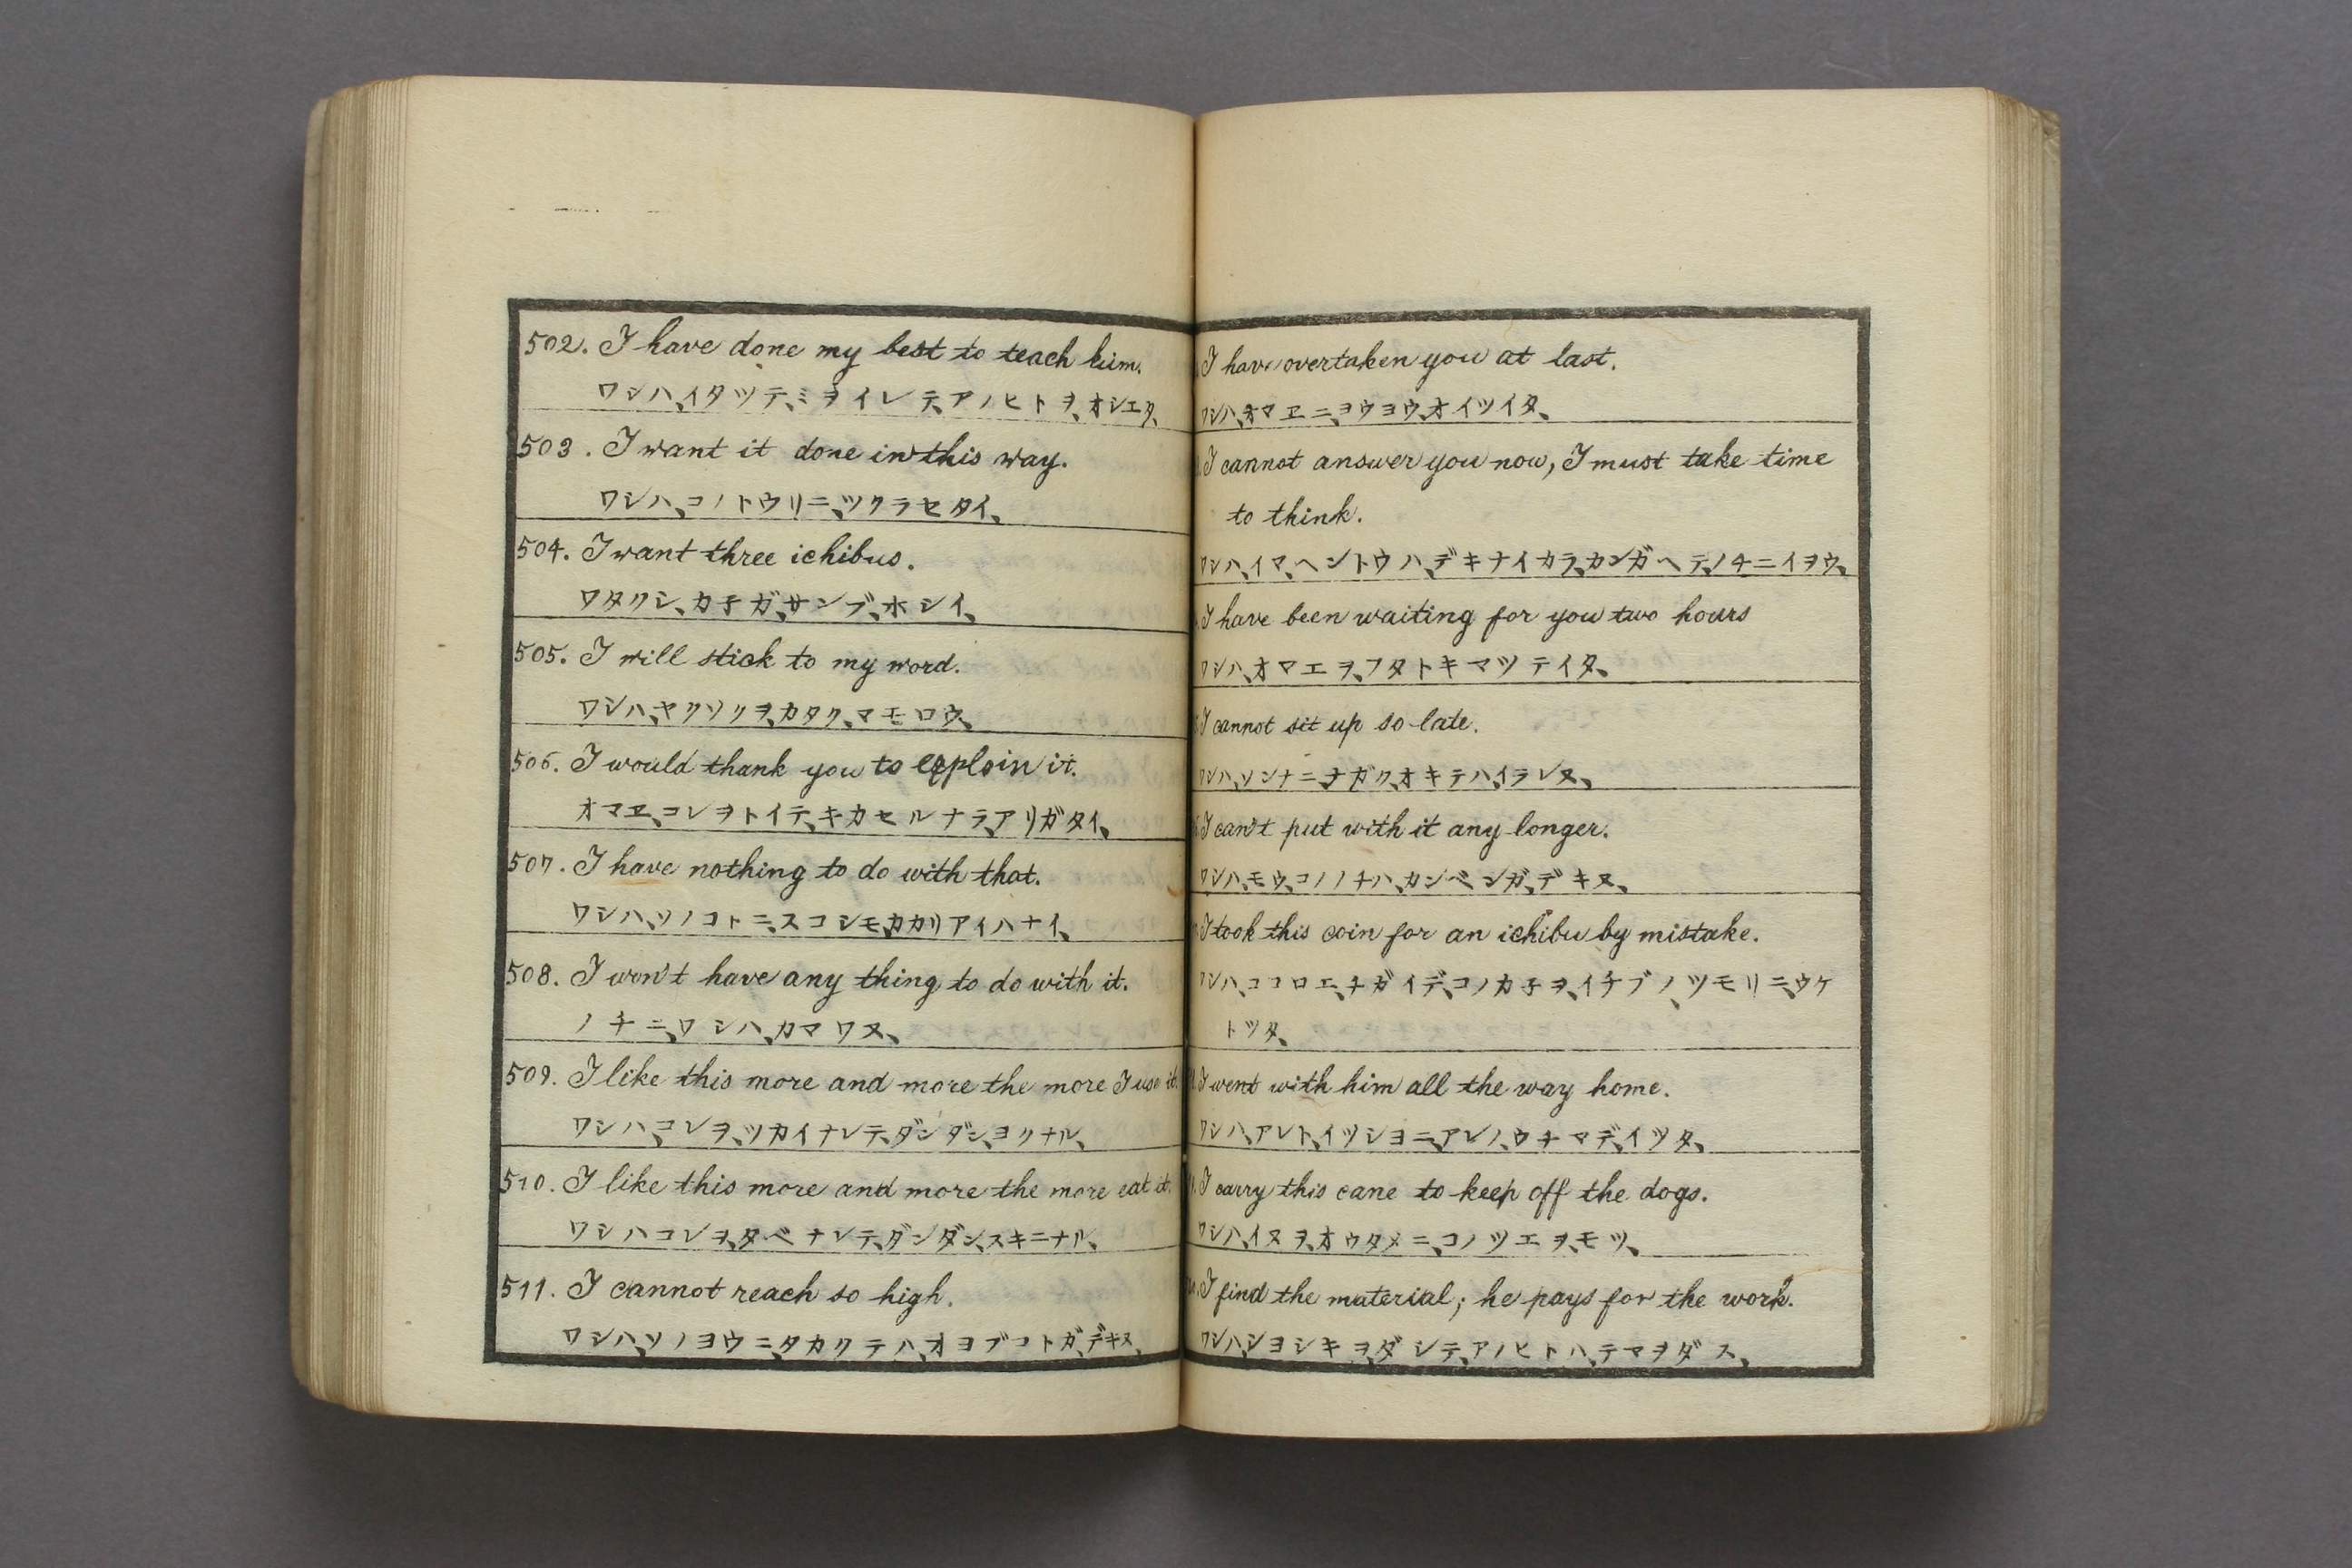 502. I have done my best to teach him.
ワシハ、イタツテ、ミヲイレテ、アノヒトヲ、オシエタ、
503. I want it done in this way.
ワシハ、コノトウリニ、ツクラセタイ、
504. I want three ichibus.
ワタクシ、カ子ガ、サンブ、ホシイ、
505. I will stick to my word.
ワシハ、ヤクソクヲ、カタク、マモロウ、
506. I would thank you to explain it.
オマヱ、コレヲトイテ、キカセルナラ、アリガタイ、
507. I have nothing to do with that.
ワシハ、ソノコトニ、スコシモ、カカリアイハナイ、
508. I won't have any thing to do with it.
ノチニ、ワシハ、カマワヌ、
509. I like this more and more the more I use it.
ワシハ、コレヲ、ツカイナレテ、ダンダン、ヨクナル、
510. I like this more and more the more eat it.
ワシハコレヲ、タベナレテ、ダンダン、スキニナル、
511. I cannot reach so high.
ワシハ、ソノヨウニ、タカクテハ、オヨブコトガ、デキヌ、
I have overtaken you at last.
ワシハ、オマヱニ、ヨウヨウ、オイツイタ、
I cannot answer you now, I must take time
to think.
ワシハ、イマ、ヘントウハ、デキナイカラ、カンガヘテ、ノチニイヨウ、
I have been waiting for you two hours
ワシハ、オマエヲ、フタトキマツテイタ、
I cannot sit up so late.
ワシハ、ソンナニ、ナガク、オキテハ、イラレヌ、
I can't put with it any longer.
ワシハ、モウ、コノノチハ、カンベンガ、デキヌ、
I took this coin for an ichibu by mistake.
ワシハ、ココロエ、チガイデ、コノカ子ヲ、イチブノ、ツモリニ、ウケ
トツタ、
I went with him all the way home.
ワシハ、アレト、イツシヨニ、アレノ、ウチマデ、イツタ、
I carry this cane to keep off the dogs.
ワシハ、イヌヲ、オウタメニ、コノツエヲ、モツ、
I find the material; he pays for the work.
ワシハ、シヨシキヲ、ダシテ、アノヒトハ、テマヲダス、